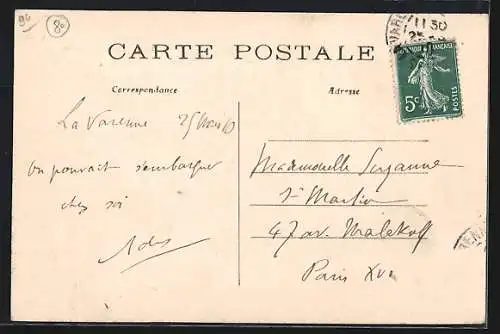 96
80
CARTE POSTALE
11 30
25
RÉPUBLIQUE FRANÇAISE
5c
POSTES
Correspondance
Adresse
La Varenne 25
On pourrait s'embarquer
chez soi
Mademoiselle Suzanne
St Martin
47 av. Malakoff
Paris XVI